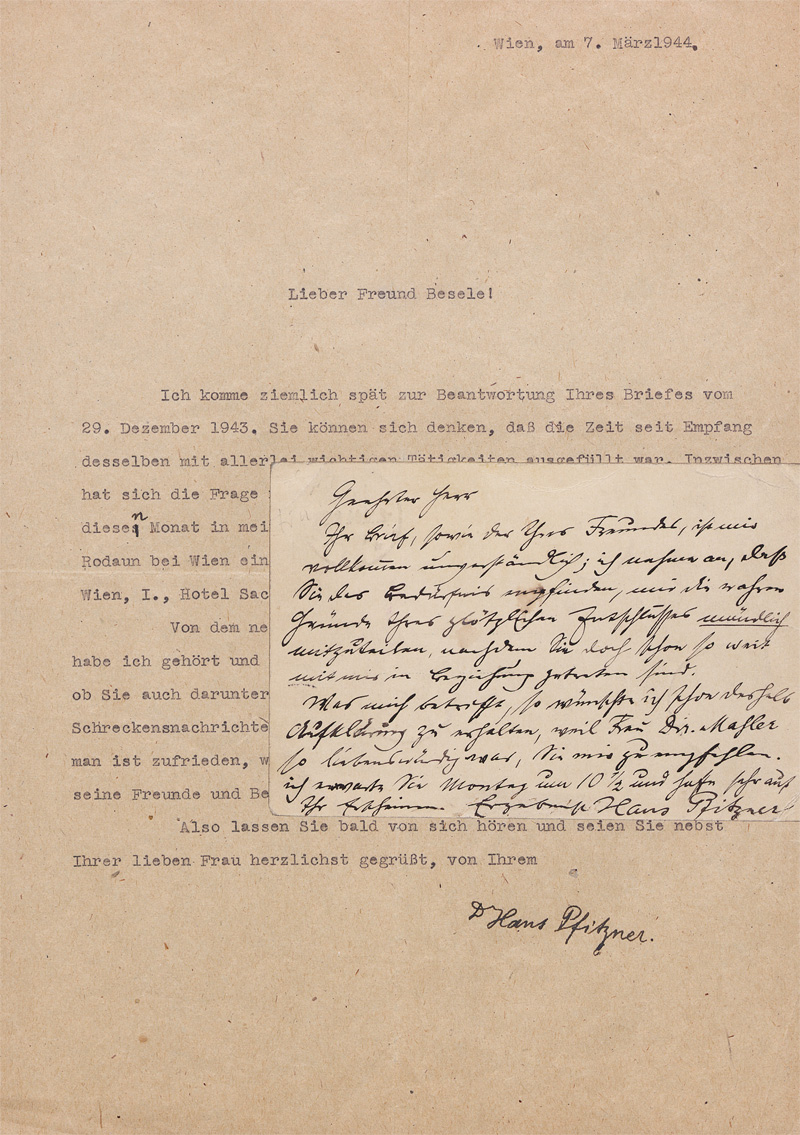 Wien, am 7. März1944.
Lieber Freund Besele!
Ich komme ziemlich spät zur Beantwortung Ihres Briefes vom
29. Dezember 1943. Sie können sich denken, daß die Zeit seit Empfang
desselben mit allerlei wichtigen Tätigkeiten ausgefüllt war. Inzwischen
hat sich die Frage
diesen Monat in mei
Rodaun bei Wien ein
Wien, I., Hotel Sac
Von dem ne
habe ich gehört und
ob Sie auch darunter
Schreckensnachrichte
man ist zufrieden, w
seine Freunde und Be
Also lassen Sie bald von sich hören und seien Sie nebst
Ihrer lieben Frau herzlichst gegrüßt, von Ihrem
Dr Hans Pfitzner.
Geehrter Herr
Ihr Brief, sowie der Ihres Freundes, ist mir
vollkommen unverständlich; ich nehme an, daß
Sie das Bedürfnis empfinden, mir die wahren
Gründe Ihres plötzlichen Entschlusses mündlich
mitzuteilen, nachdem Sie doch schon so weit
mit mir in Beziehung getreten sind.
Was mich betrifft, so wünschte ich schon deshalb
Aufklärung zu erhalten, weil Frau Dir. Mahler
so liebenswürdig war, Sie mir zu empfehlen.
ich erwarte Sie Montag um 10 1/2 und hoffe sehr auf
Ihr Erscheinen. Hans Pfitzner